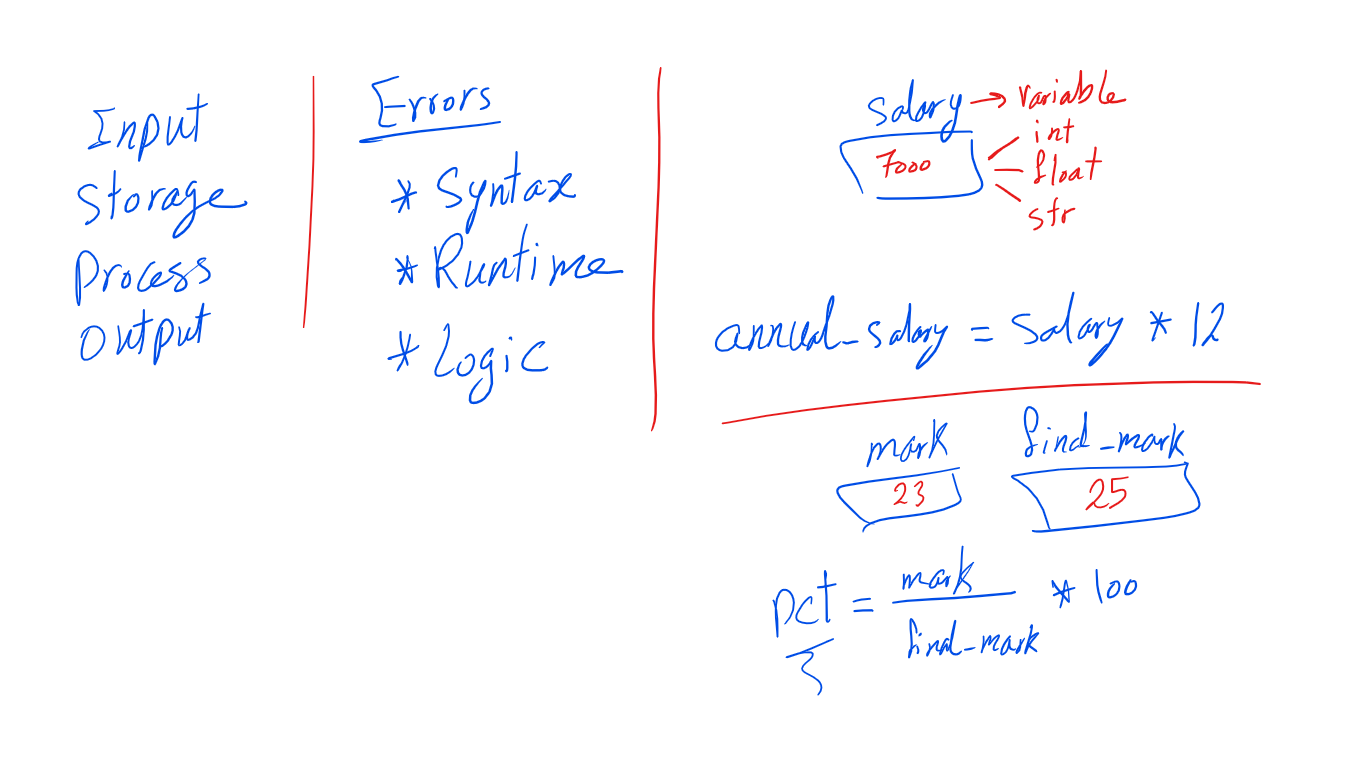 Input
Storage
Process
output
Errors
* Syntax
* Runtime
* Logic
salary → variable
7000
int
float
str
annual_salary = salary * 12
mark
23
find_mark
25
pct = mark / find_mark * 100